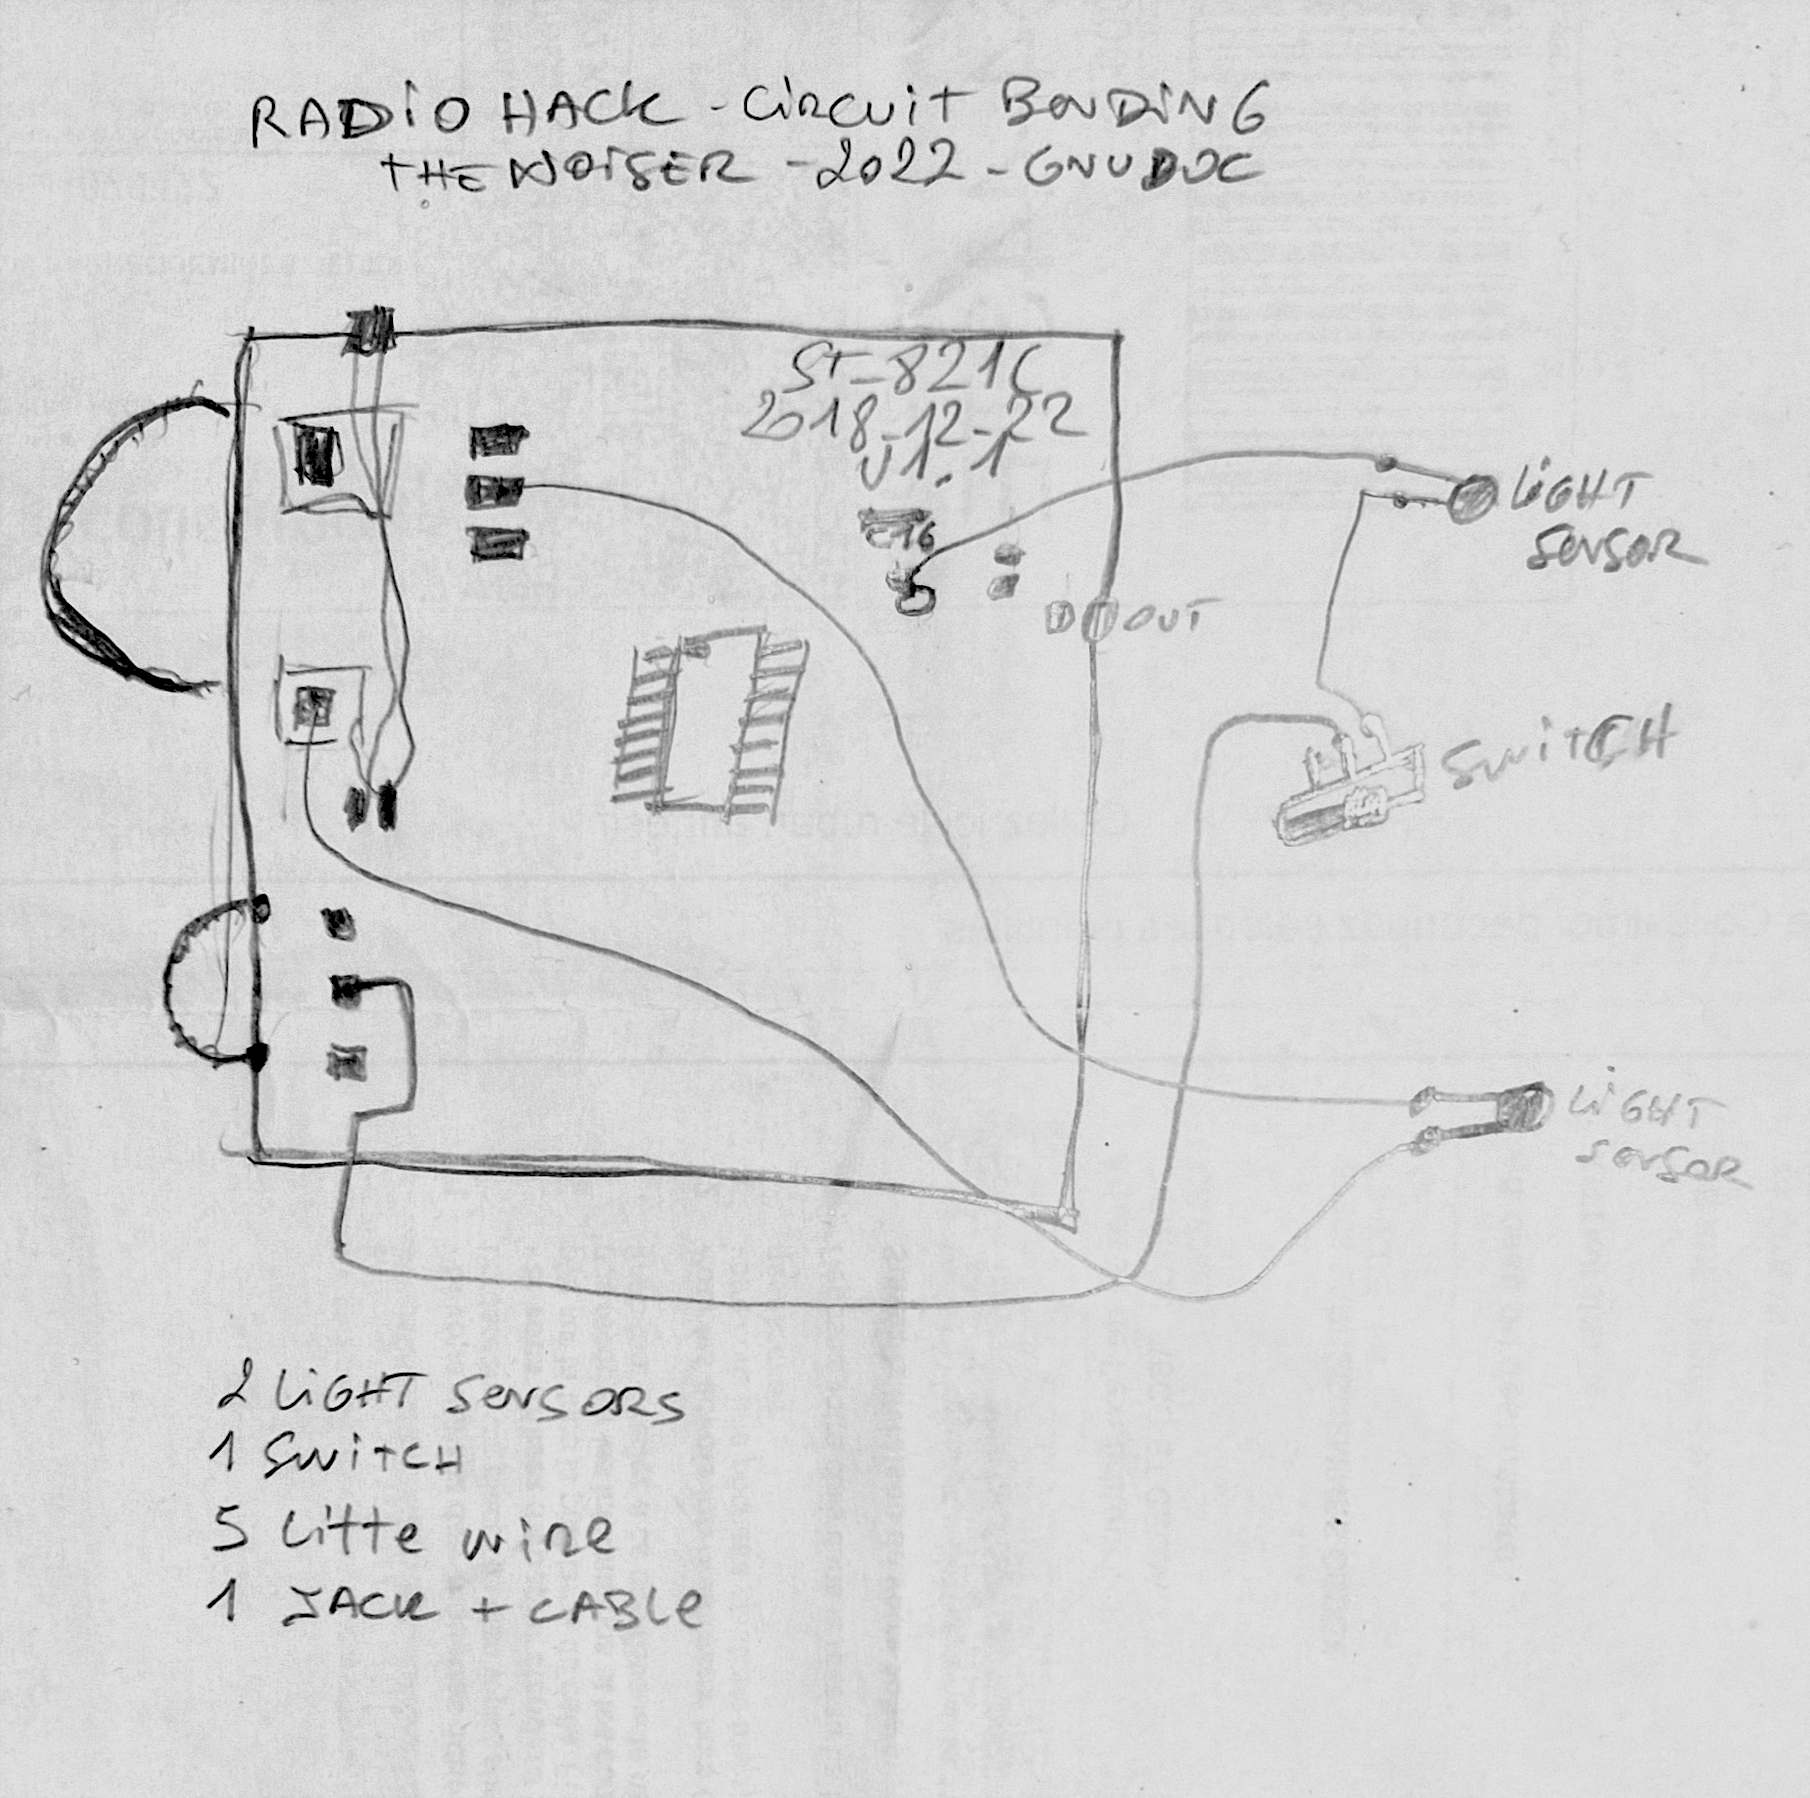 RADiO HACK - CiRCUiT BENDiNG
THE NOiSER - 2022 - GNUDOC
ST-821C
2018-12-22
V1.1
C16
LiGHT
SENSOR
OUT
SWiTCH
LiGHT
SENSOR
2 LiGHT SENSORS
1 SWiTCH
5 Litte wire
1 JACK + CABLE